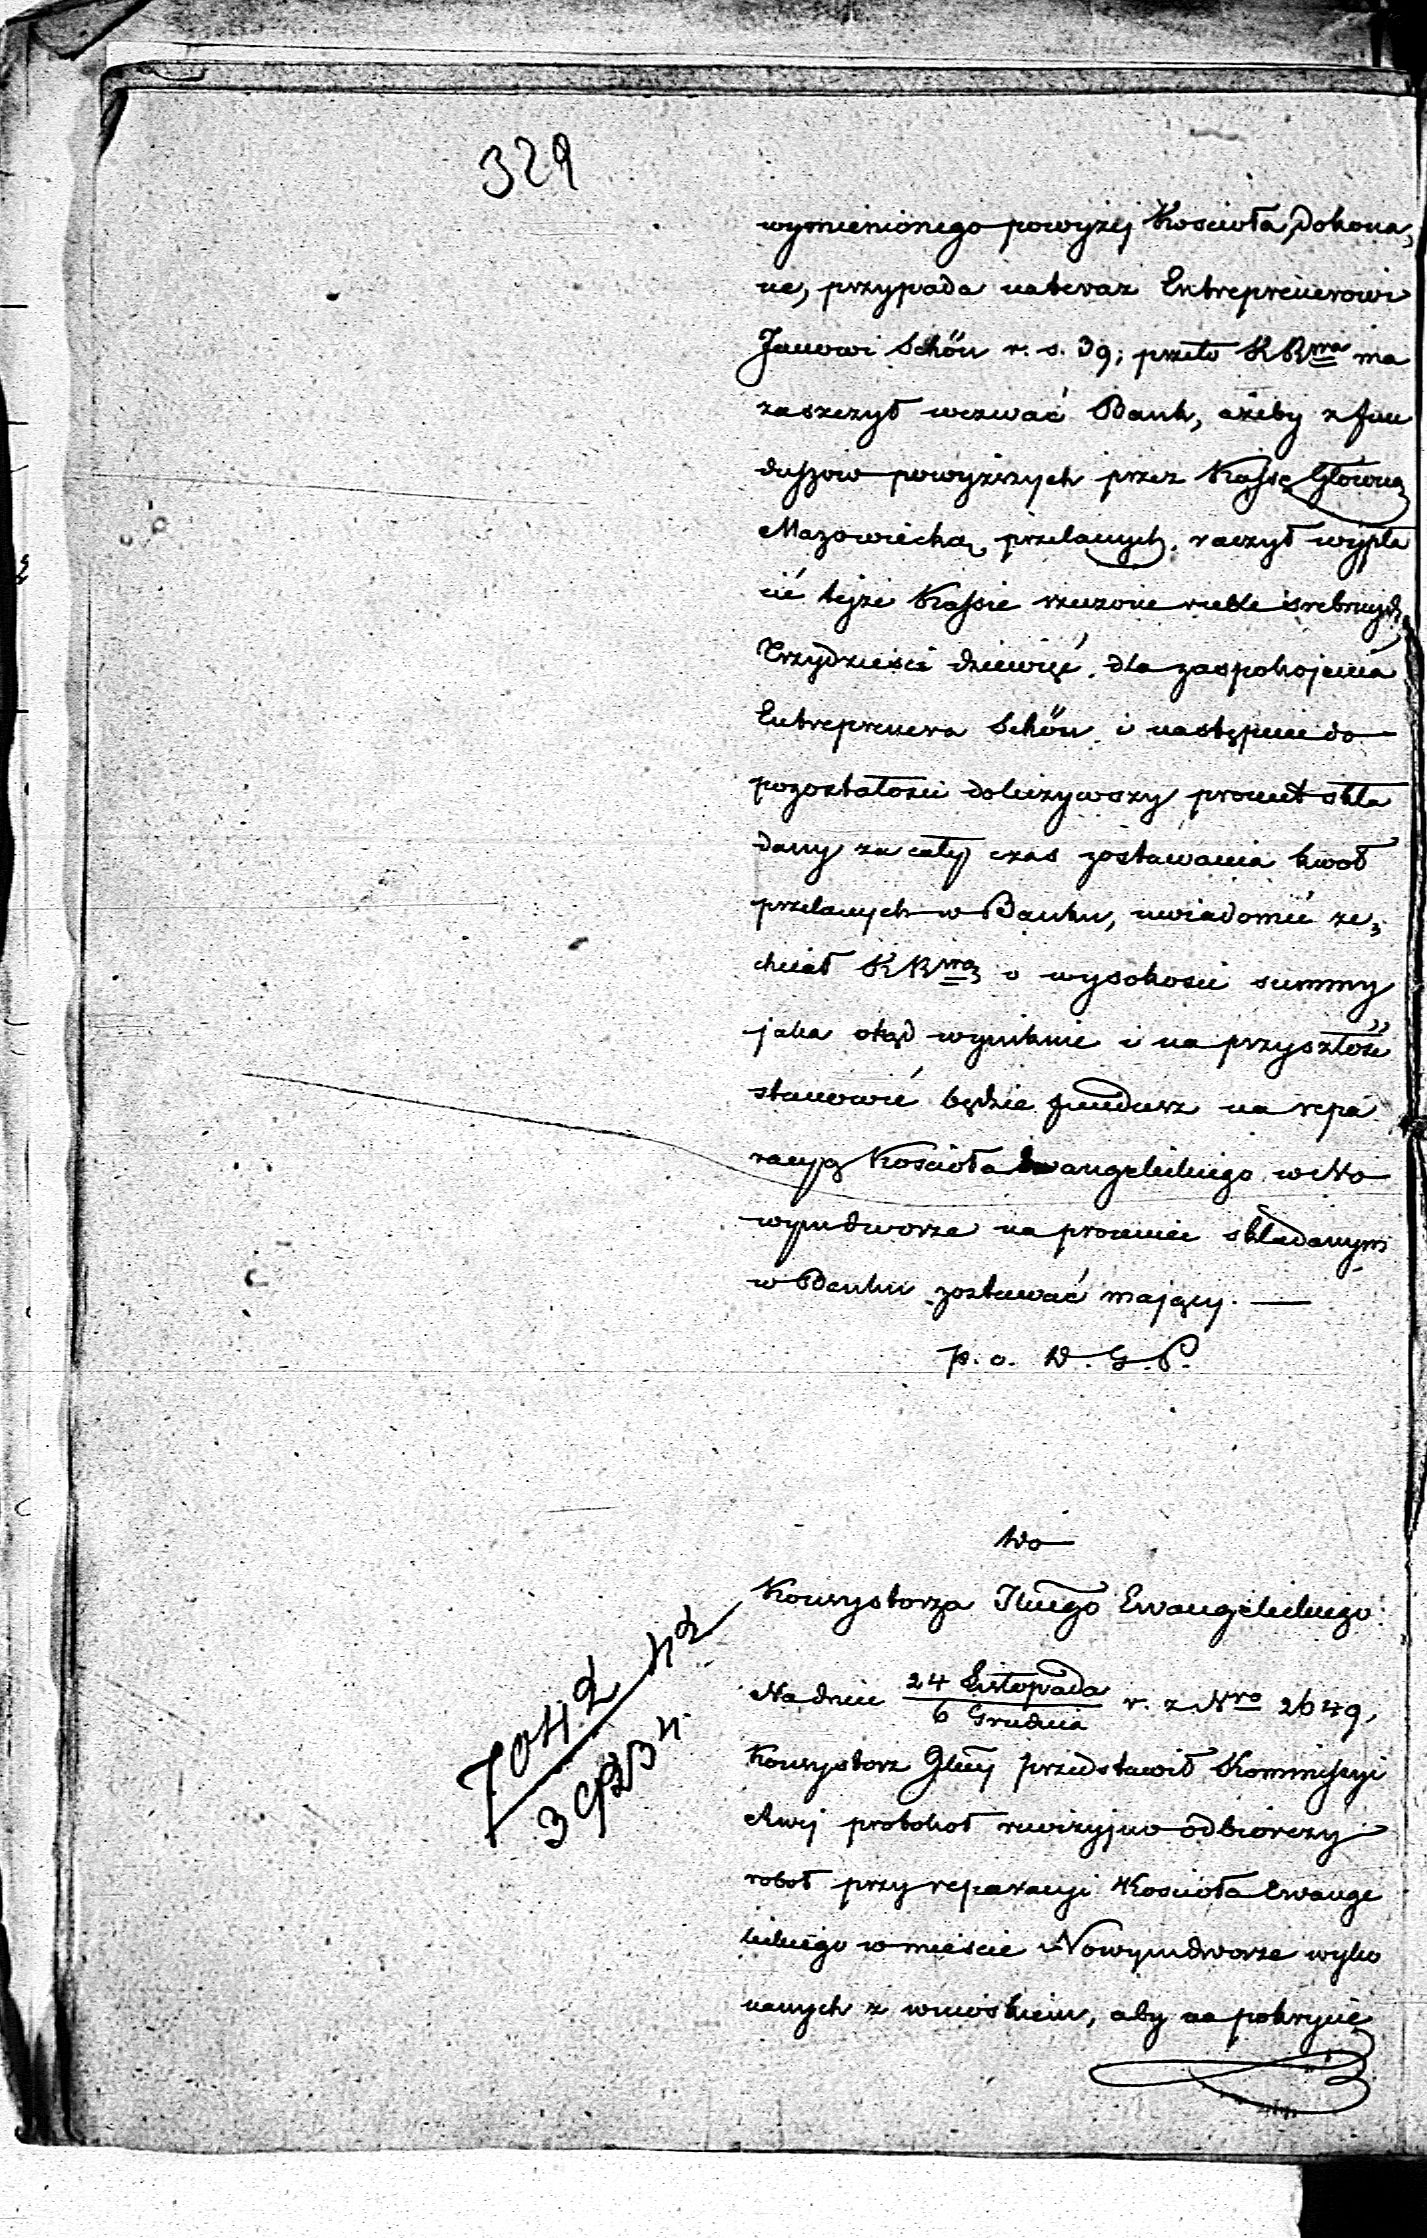 329
wymienionego powyżej Kościoła, dokona,
ne, przypada nateraz Entreprenerowi
Janowi Schön r. s. 39; przeto KR<sup>wa</sup> ma
zaszczyt wezwać Bank, ażeby z fun
duszow powyższych przez Kassę Główną
Mazowiecką przelanych, raczył wypła
cić tejże Kassie rzeczone ruble srebrnych
Trzydzieści dziewięć, dla zaspokojenia
Entreprenera Schön i następnie do
pozostałości doliczywszy procent skła
dany za cały czas zostawania kwot
przelanych w Banku, uwiadomić ze,
chciał KR<sup>wą</sup> o wysokości summy
jaka ztąd wyniknie i na przyszłość
stanowić będzie fundusz na repa
racyą Kościoła Ewangelickiego w No
wymdworze na procencie składanym
w Banku zostawać mający. —
p. o. D. G. P.
Do
Konsystorza Jlnego Ewangelickiego
Na dniu 24 Listopada / 6 Grudnia r. z Nro 2649,
Konsystorz Jlny przedstawił Kommissyi
Rwej protokoł rewizyjno odbiorczy
robot przy reparacyi Kościoła Ewange
lickiego w mieście Nowymdworze wyko
nanych z wnioskiem, aby na pokrycie